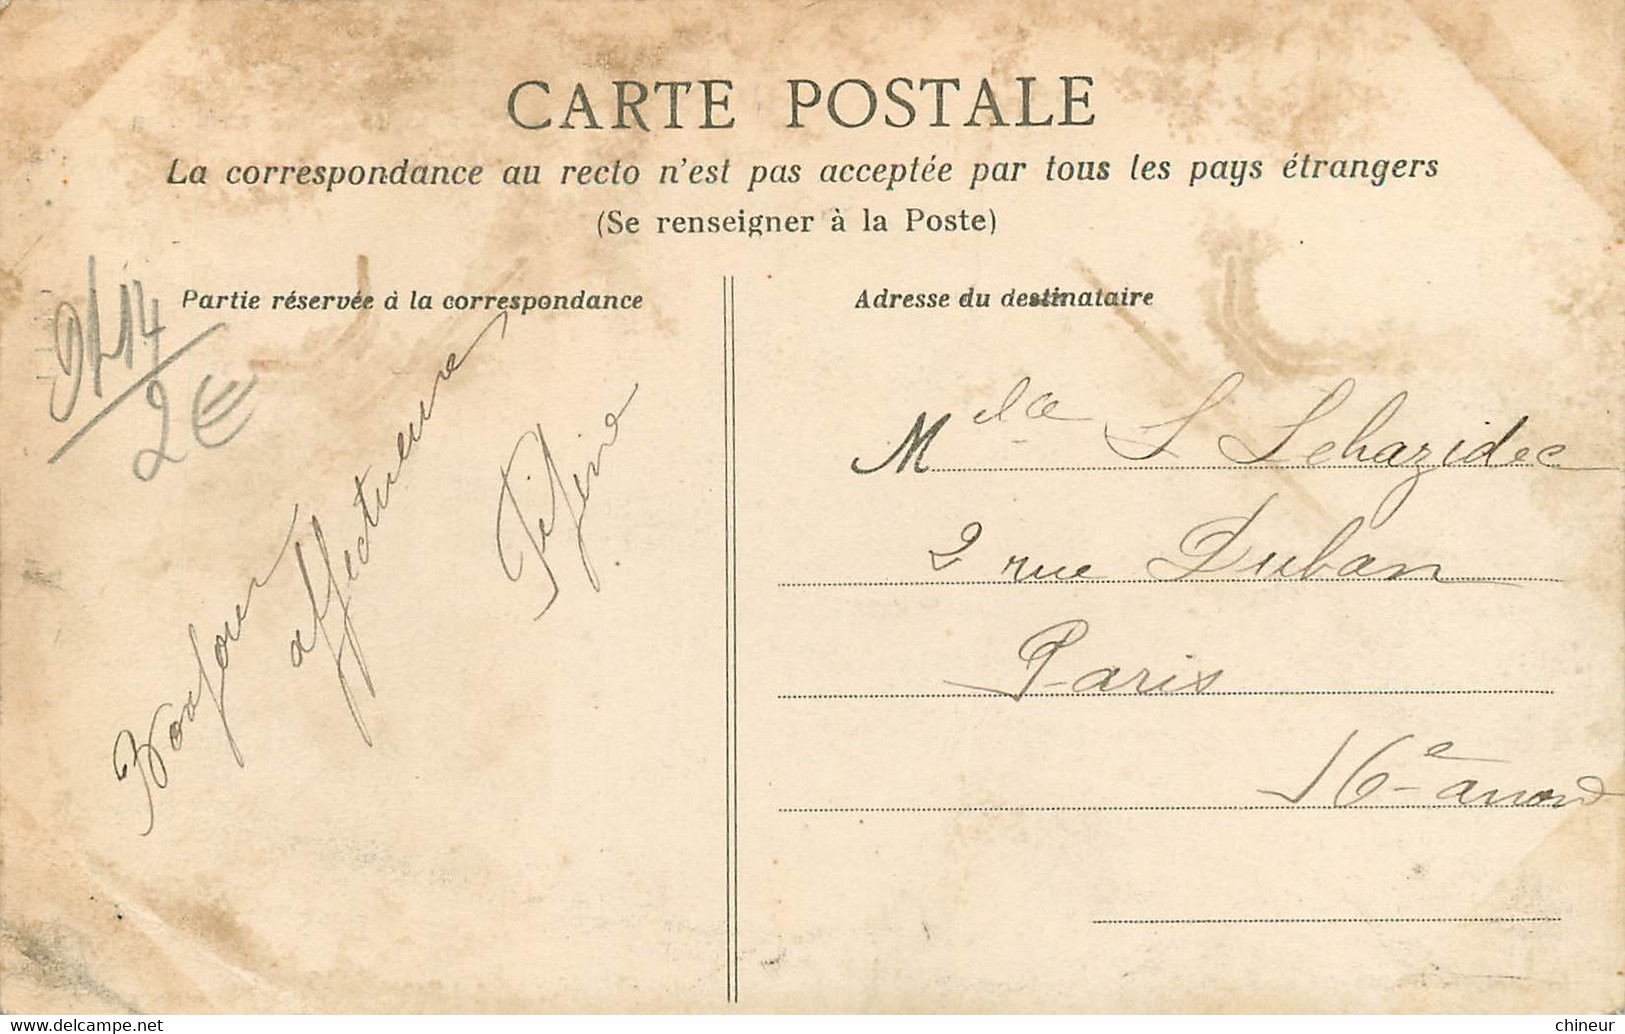 CARTE POSTALE
La correspondance au recto n'est pas acceptée par tous les pays étrangers
(Se renseigner à la Poste)
Partie réservée à la correspondance
Adresse du destinataire
2€
Bonjour
affectueux
M
2 rue Duban
Paris
16e
www.delcampe.net
chineur